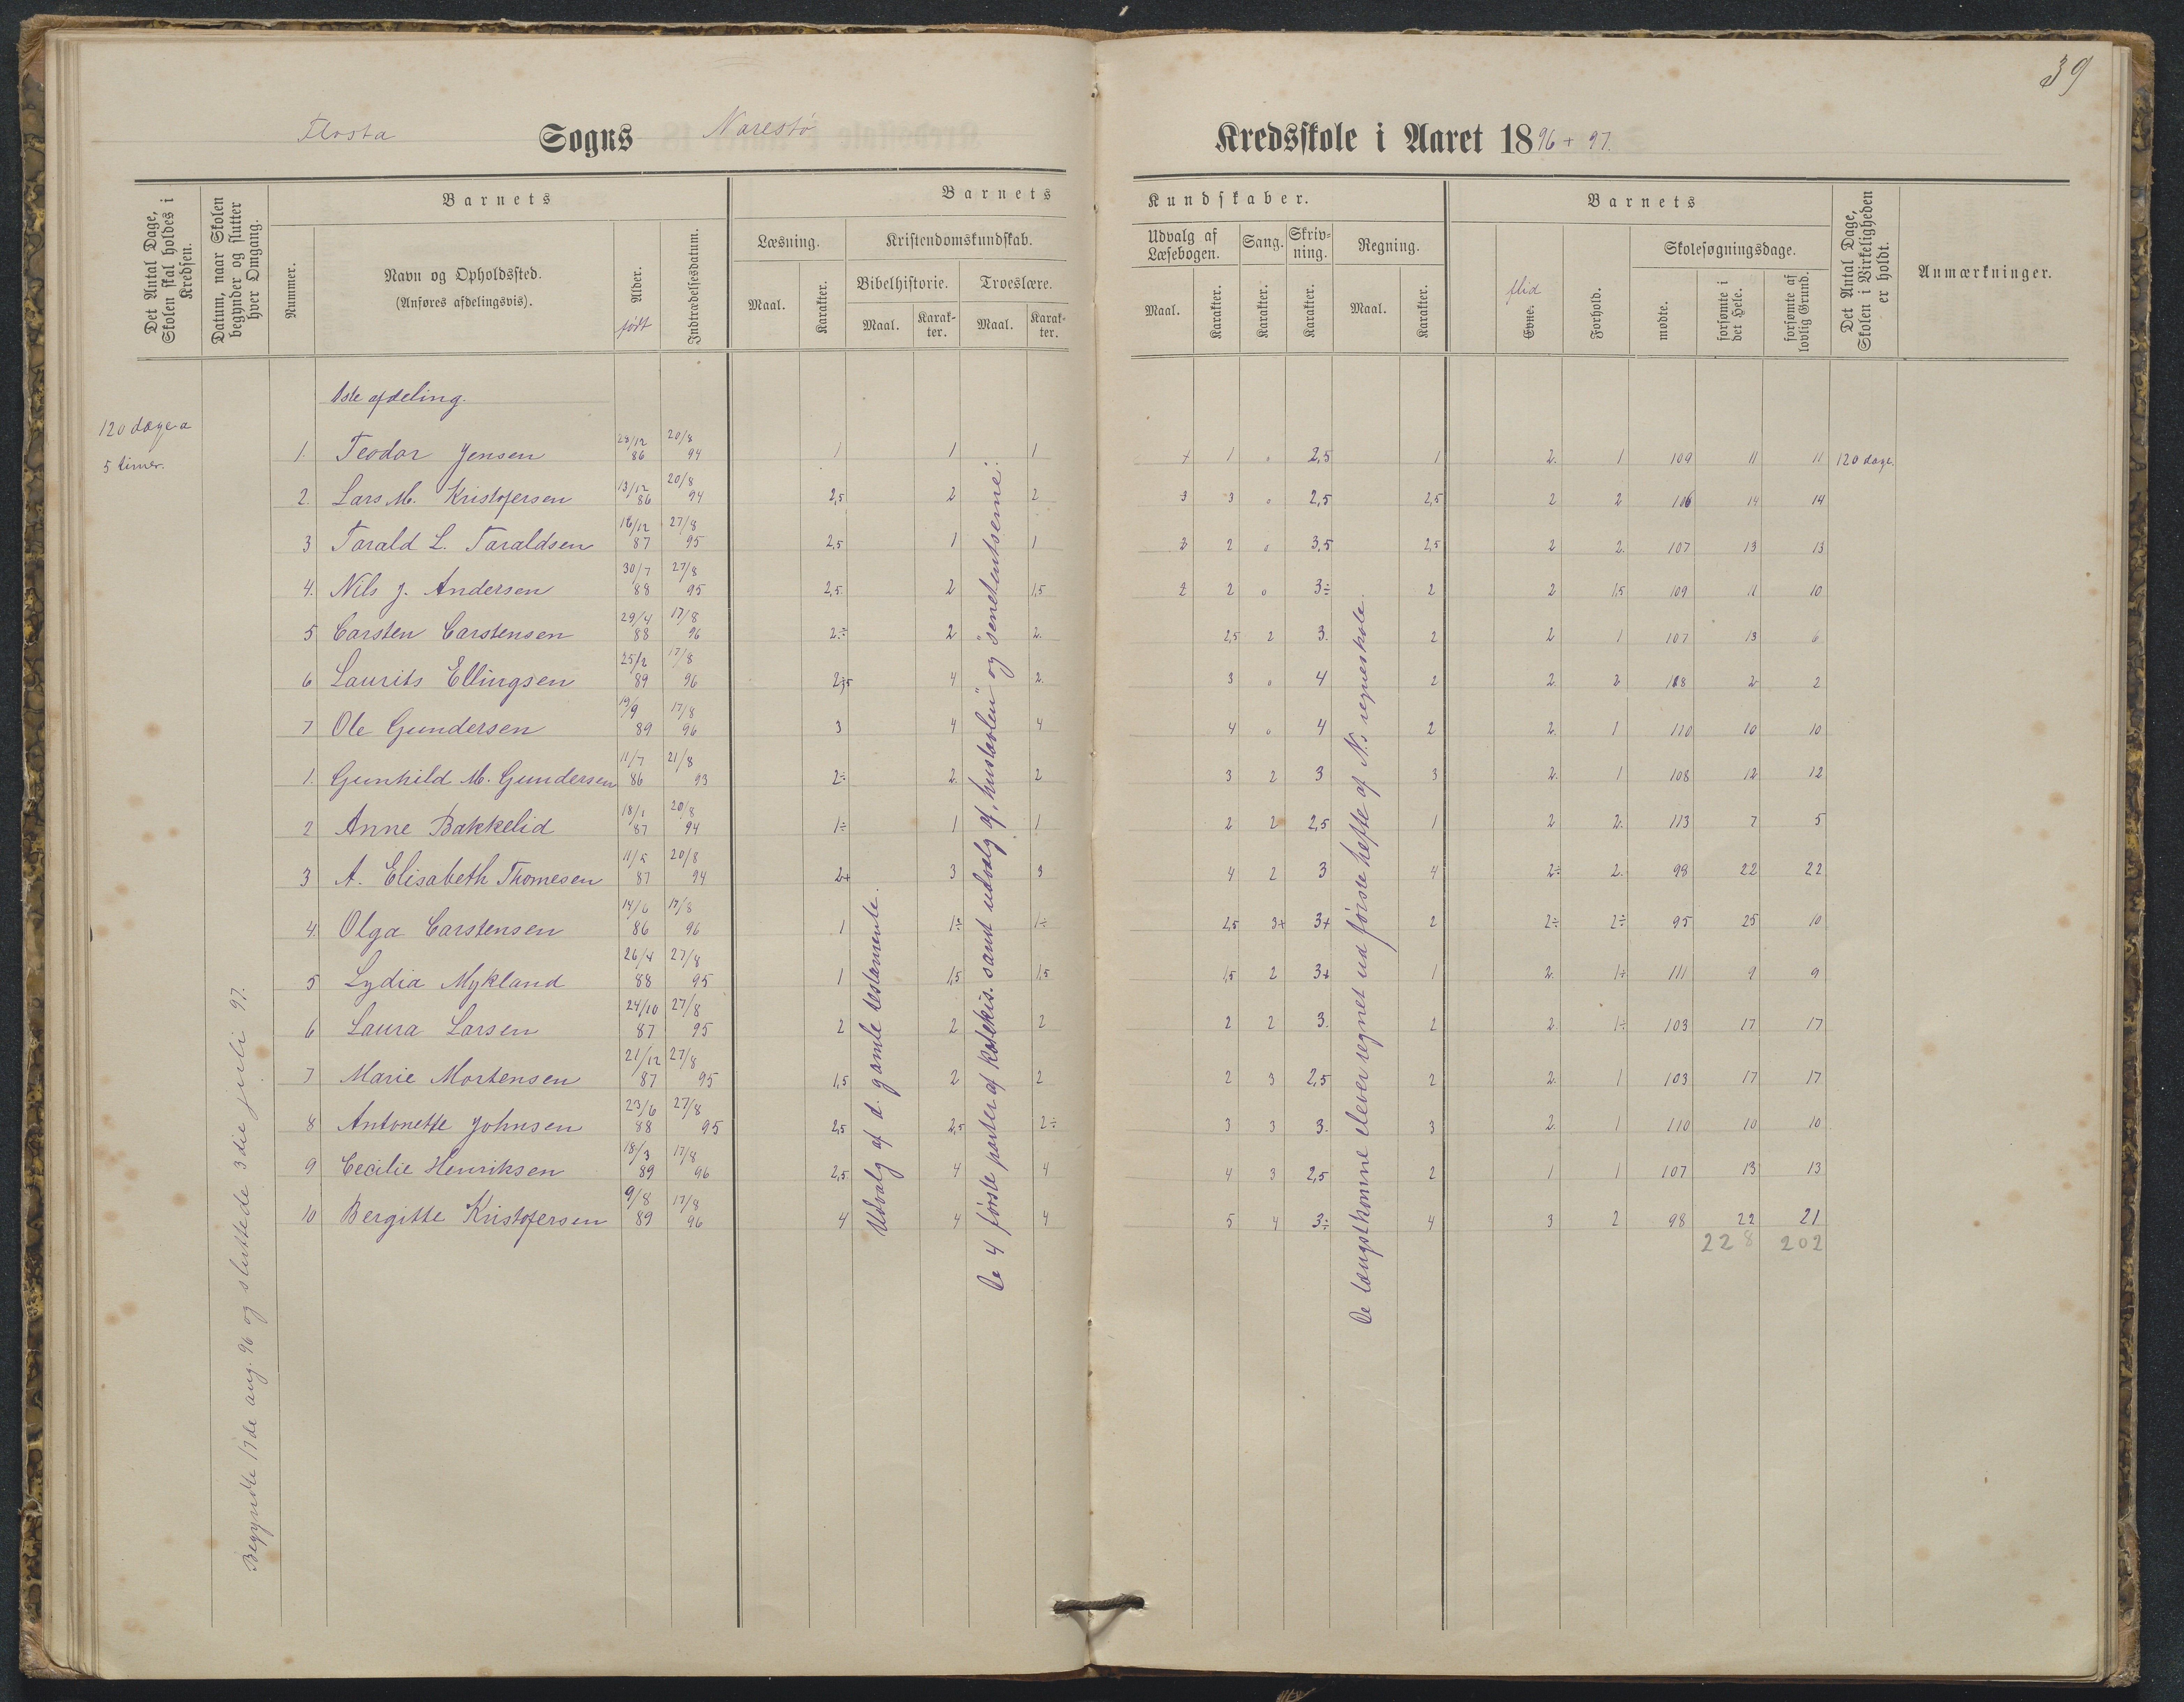 39
Flosta Sogns Narestö Kredsskole i Aaret 1896 + 97.
Det Antal Dage, Skolen skal holdes i Kredsen.
Datum, naar Skolen begynder og slutter hver Omgang.
Nummer.
Barnets
Navn og Opholdssted.
(Anføres afdelingsvis).
Alder.
født
Indtrædelsesdatum.
Barnets Kundskaber.
Læsning.
Maal. Karakter.
Kristendomskundskab.
Bibelhistorie. Troeslære.
Maal. Karakter. Maal. Karakter.
Udvalg af Læsebogen.
Maal. Karakter.
Sang.
Karakter.
Skrivning.
Karakter.
Regning.
Maal. Karakter.
Barnets
flid
Evne.
Forhold.
Skolesøgningsdage.
mødte.
forsømte i det Hele.
forsømte af lovlig Grund.
Det Antal Dage, Skolen i Virkeligheden er holdt.
Anmærkninger.
1ste afdeling.
120 dage a
5 timer.
1. Teodor Jensen 28/12 86 20/8 94 1 1 1 + 1 0 2,5 1 2. 1 109 11 11 120 dage.
2. Lars M. Kristofersen 13/12 86 20/8 94 2,5 2 2 3 3 0 2,5 2,5 2 2 106 14 14
3 Tarald L. Taraldsen 16/12 87 27/8 95 2,5 1 1 2 2 0 3,5 2,5 2 2. 107 13 13
4. Nils J. Andersen 30/7 88 27/8 95 2,5. 2 1,5 2 2 0 3÷ 2 2 1,5 109 11 10
5 Carsten Carstensen 29/4 88 17/8 96 2÷ 2 2. 2,5 2 3. 2 2 1 107 13 6
6 Laurits Ellingsen 25/2 89 17/8 96 4 2. 3 0 4 2 2. 2 118 2 2
7 Ole Gundersen 19/9 89 17/8 96 3 4 4 4 0 4 2 2. 1 110 10 10
1. Gunhild M. Gundersen 11/7 86 21/8 93 2÷ 2 2 3 2 3 3 2. 1 108 12 12
2 Anne Bakkelid 18/1 87 20/8 94 1÷ 1 1 2 2 2,5 1 2 2. 113 7 5
3 A. Elisabeth Thomesen 11/5 87 20/8 94 2+ 3 3 4 2 3 4 2÷ 2. 98 22 22
4. Olga Carstensen 14/6 86 17/8 96 1 1÷ 1÷ 2,5 3+ 3+ 2 2÷ 2÷ 95 25 10
5 Lydia Mykland 26/4 88 27/8 95 1 1,5 1,5 1,5 2 3+ 1 2. 1÷ 111 9 9
6 Laura Larsen 24/10 87 27/8 95 2 2 2 2 2 3. 2 2. 1÷ 103 17 17
7 Marie Mortensen 21/12 87 27/8 95 1,5 2 2 2 3 2,5 2 2. 1 103 17 17
8 Antonette Johnsen 23/6 88 27/8 95 2,5 2,5 2÷ 3 3 3. 3 2. 1 110 10 10
9 Cecilie Henriksen 18/3 89 17/8 96 2,5 4 4 4 3 2,5 2 1 1 107 13 13
10 Bergitte Kristofersen 9/8 89 17/8 96 4 4 4 5 4 3÷ 4 3 2 98 22 21
228 202
Begyndte 17de aug. 96 og sluttede 3die juli 97.
Udvalg af d. gamle testamente.
De 4 første parter af katekis. samt udvalg af „hustavlen" og
De længstkomne elever regnet ud første hefte af N.s regneskole.